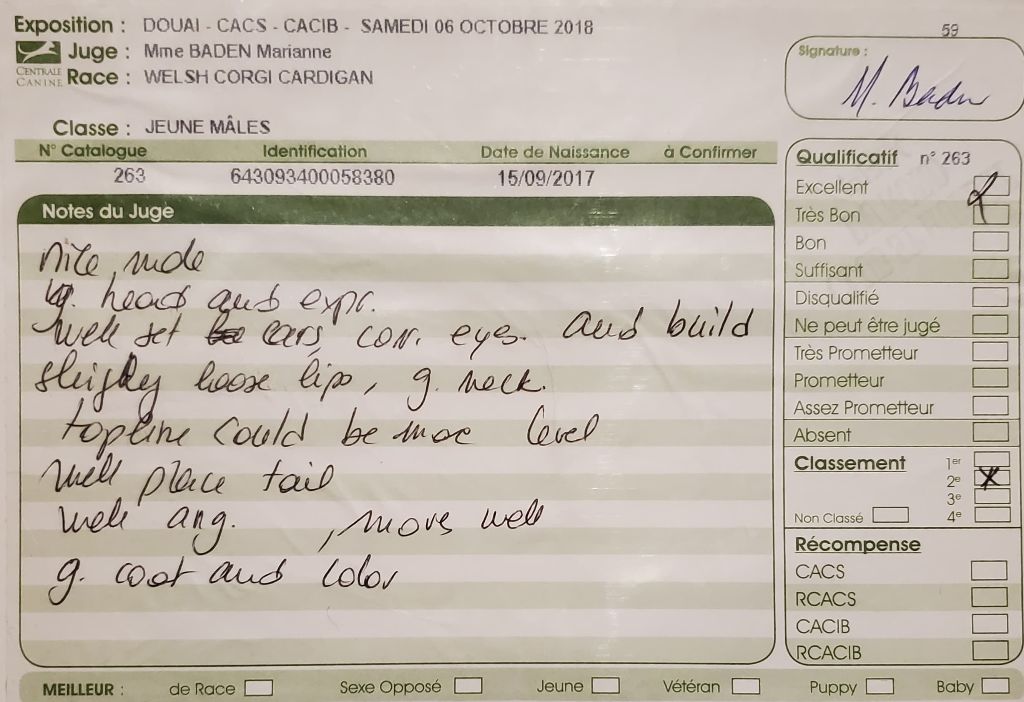 Exposition : DOUAI - CACS - CACIB - SAMEDI 06 OCTOBRE 2018
59
Juge : Mme BADEN Marianne
CENTRALE CANINE
Race : WELSH CORGI CARDIGAN
Signature :
M. Baden
Classe : JEUNE MÂLES
N° Catalogue Identification Date de Naissance à Confirmer
263 643093400058380 15/09/2017
Notes du Juge
nice, male
g. head and expr.
well set ears, corr. eyes. and build
slightly loose lips, g. neck.
topline could be more level
well place tail
well ang. , move well
g. coat and color
Qualificatif n° 263
Excellent
Très Bon
Bon
Suffisant
Disqualifié
Ne peut être jugé
Très Prometteur
Prometteur
Assez Prometteur
Absent
Classement 1er
2e X
3e
Non Classé 4e
Récompense
CACS
RCACS
CACIB
RCACIB
MEILLEUR : de Race Sexe Opposé Jeune Vétéran Puppy Baby